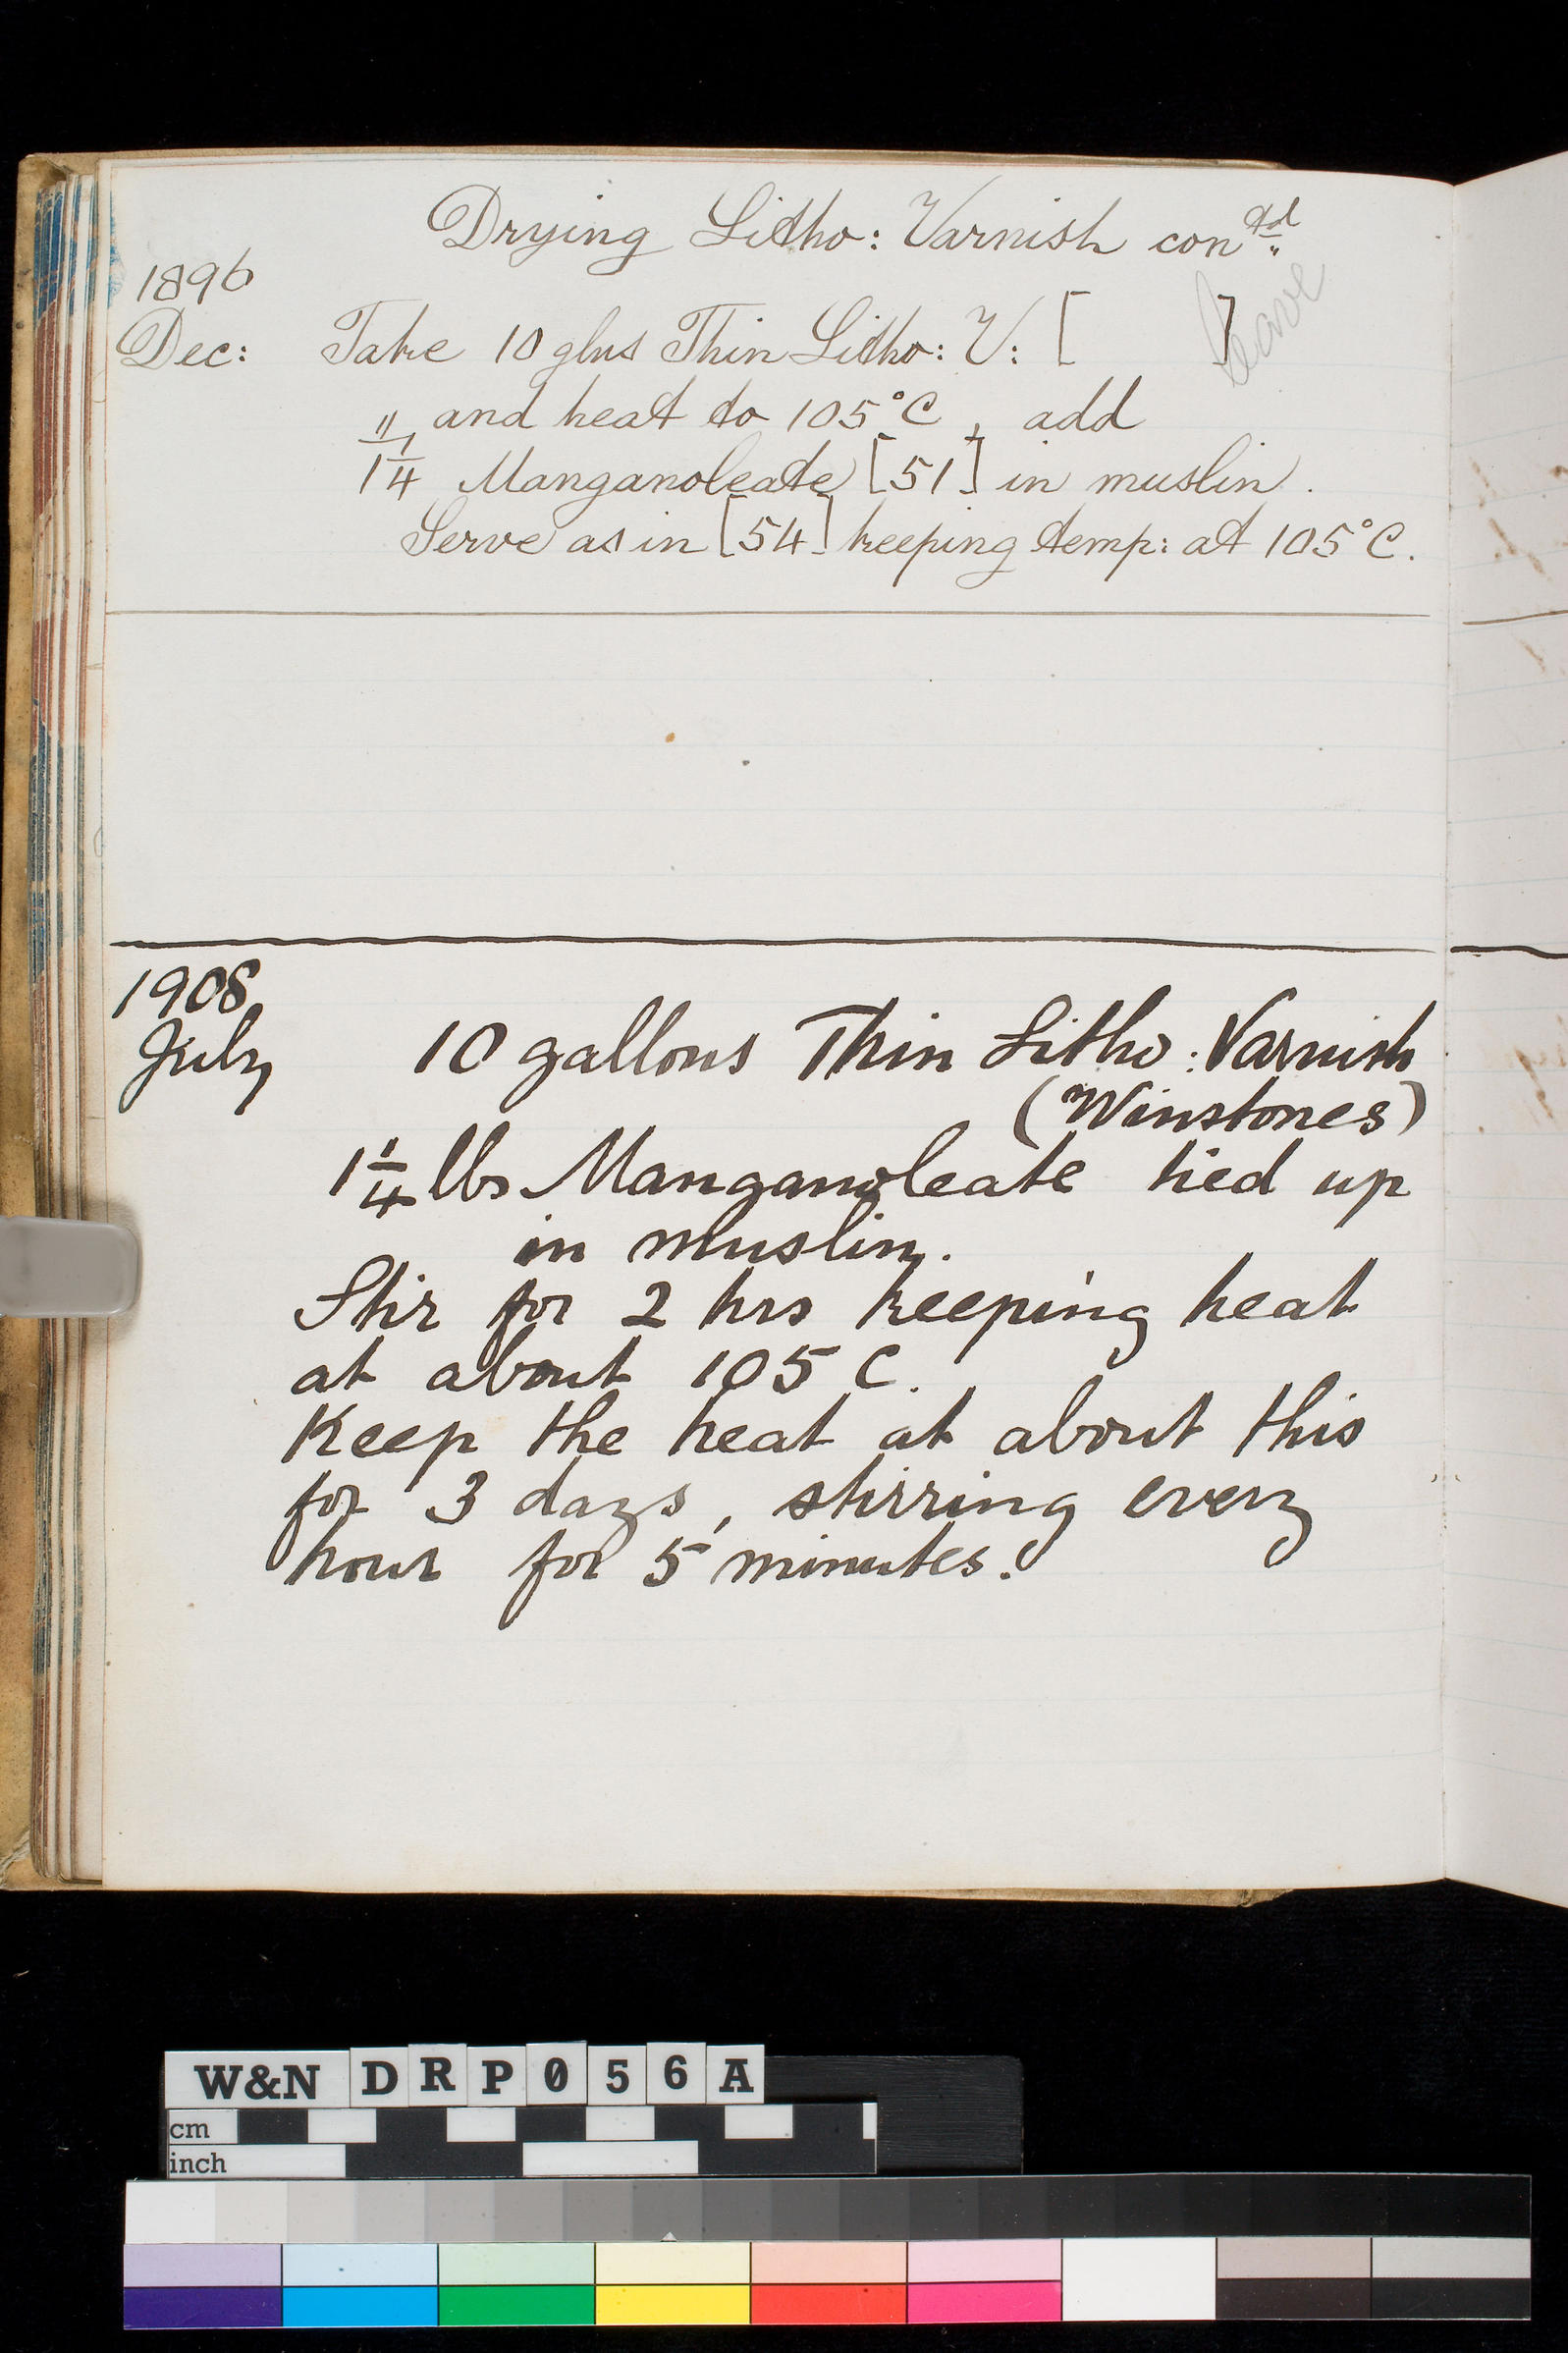 Drying Litho: Varnish contd
1896
Dec: Take 10 glns Thin Litho: V: [ ] leave
" and heat to 105°C, add
1 1/4 Manganoleate [51] in muslin.
Serve as in [54] keeping temp: at 105°C.
1908
July 10 gallons Thin Litho: Varnish
(Winstones)
1 1/4 lbs Manganoleate tied up
in muslin.
Stir for 2 hrs keeping heat
at about 105 C.
Keep the heat at about this
for 3 days, stirring every
hour for 5 minutes.
W&N DRP056A
cm
inch